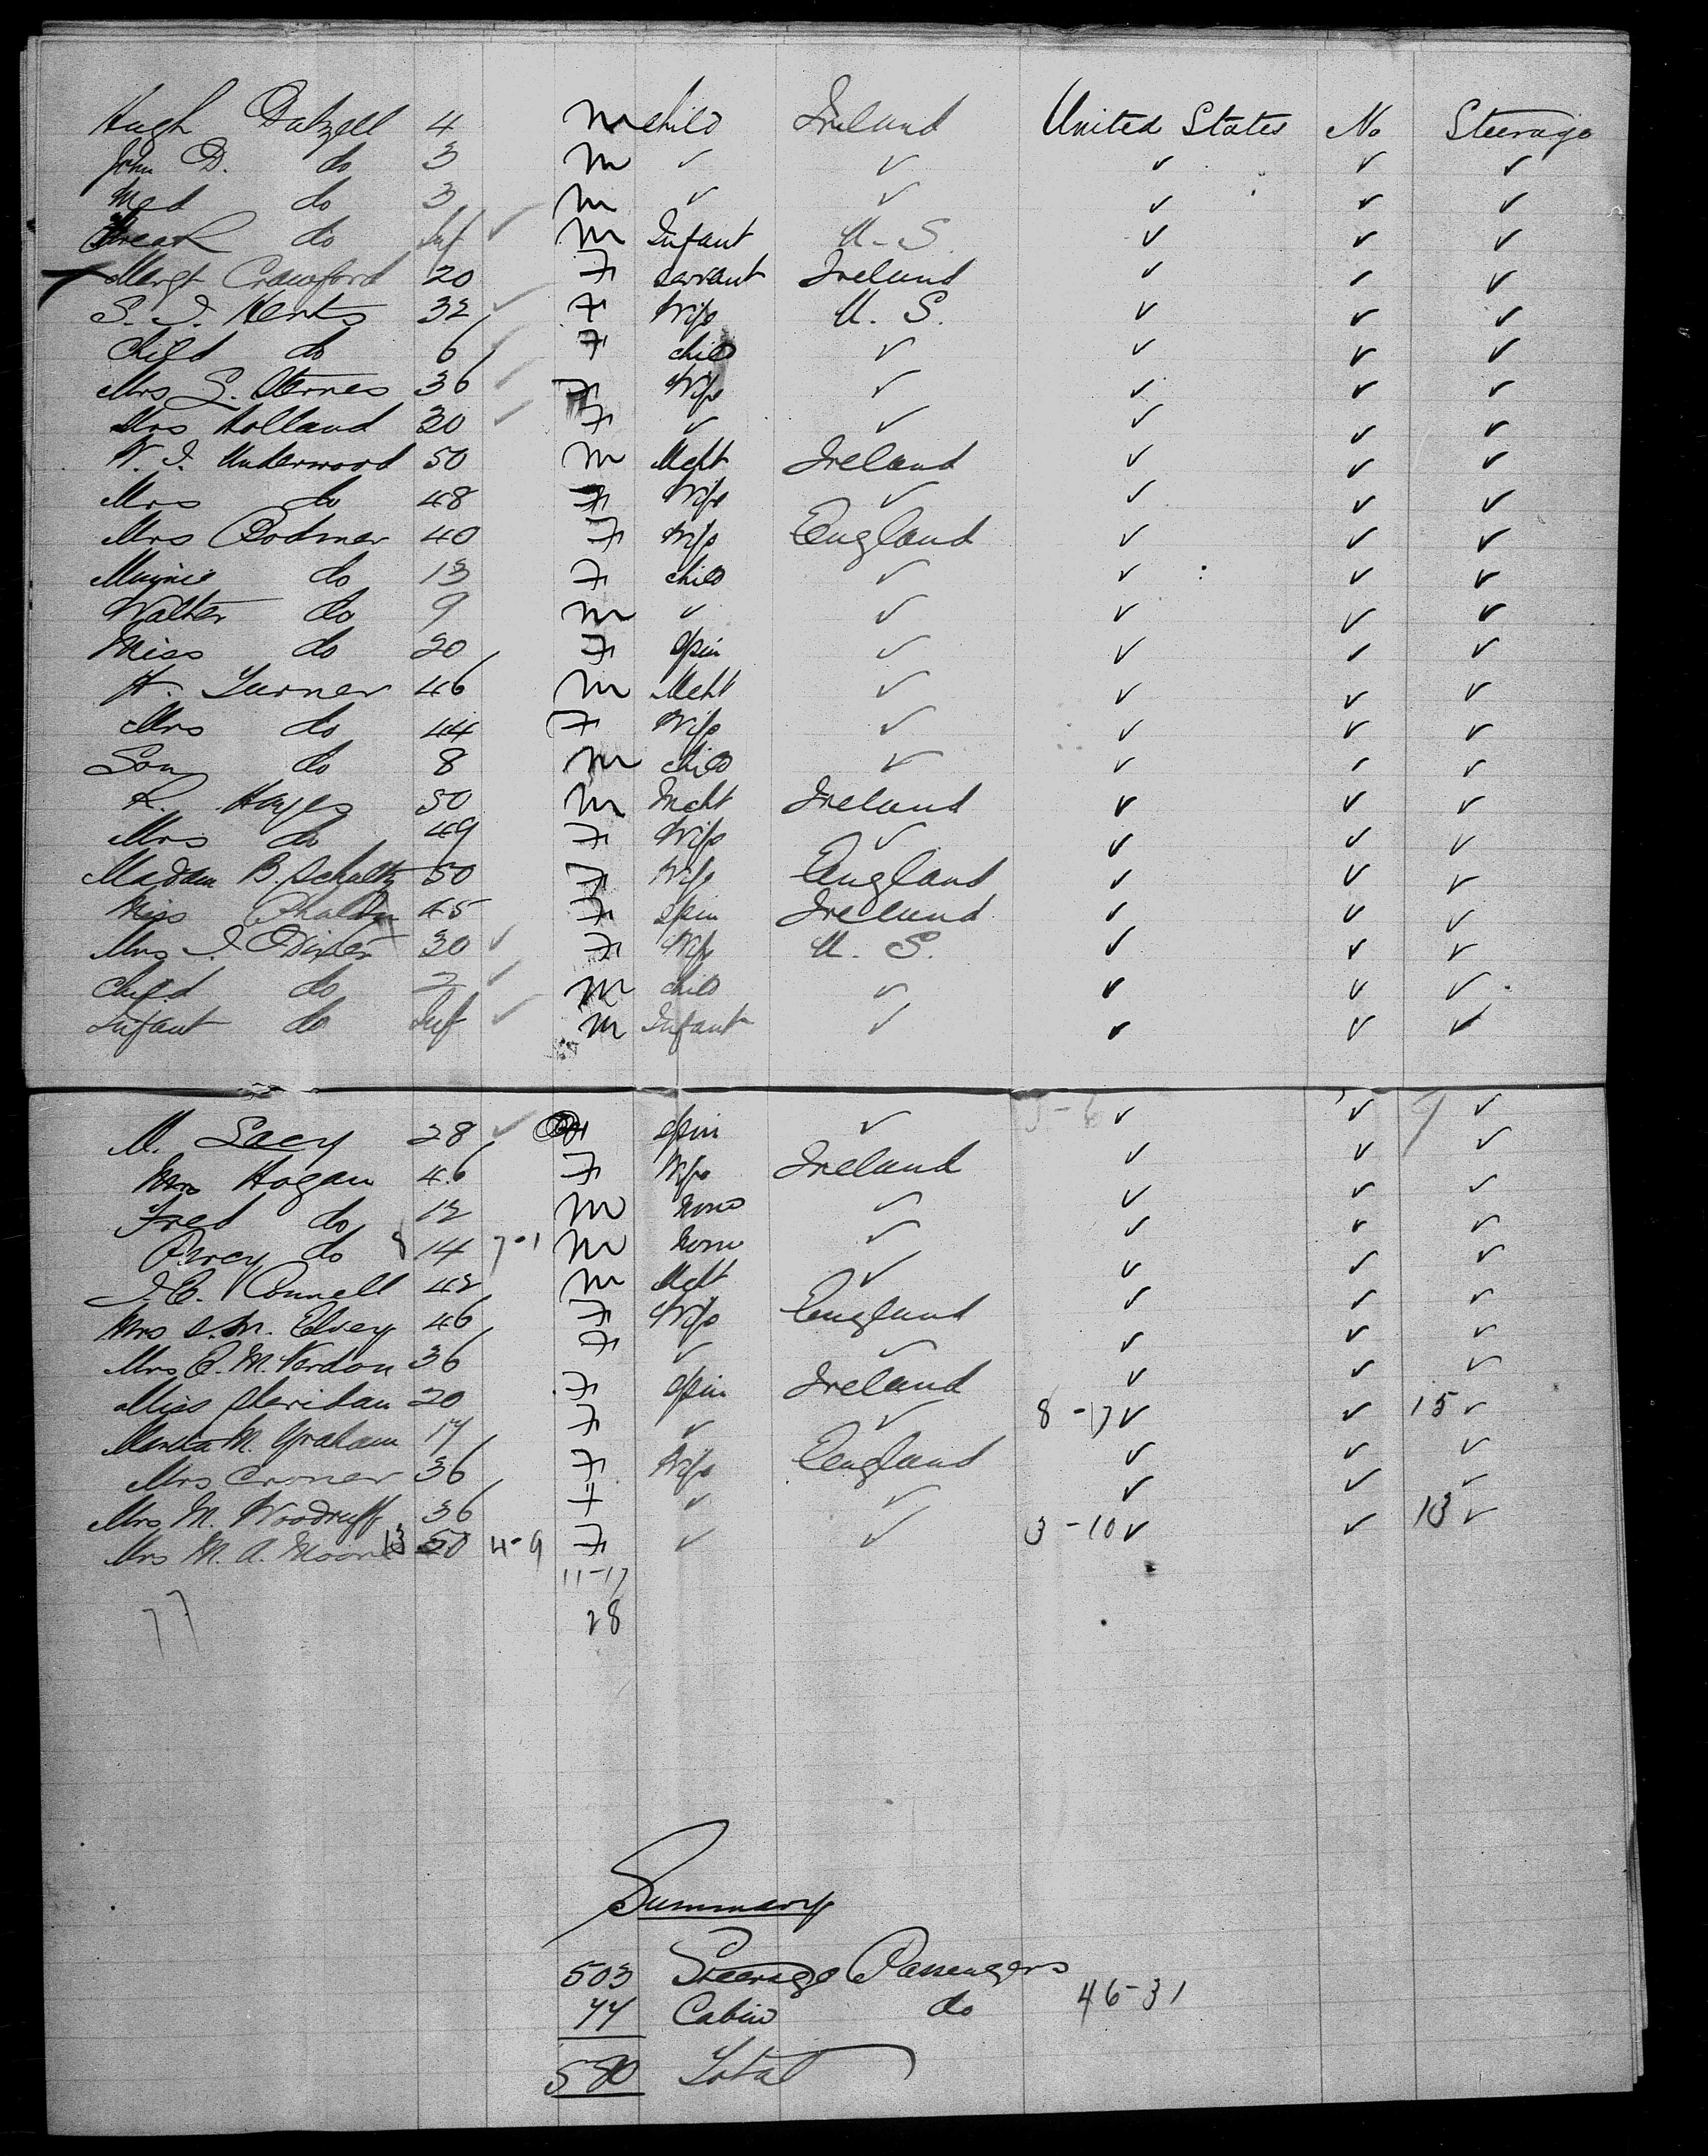 Hugh Dalzell 4 m child Ireland United States No Steerage
John D. do 3 m ✓ ✓ ✓ ✓ ✓
Med do 3 m ✓ ✓ ✓ ✓ ✓
do Inf ✓ m Infant U.S. ✓ ✓ ✓
Margt Crawford 20 F servant Ireland ✓ ✓ ✓
S. I. Herts 32 ✓ F Wife U.S. ✓ ✓ ✓
Child do 6 ✓ F child ✓ ✓ ✓ ✓
Mrs S. Sternes 36 ✓ F Wife ✓ ✓ ✓ ✓
Mrs Holland 30 ✓ F ✓ ✓ ✓ ✓ ✓
W. I. Underwood 50 m Mcht Ireland ✓ ✓ ✓
Mrs do 48 F Wife ✓ ✓ ✓ ✓
Mrs Bodmer 40 F Wife England ✓ ✓ ✓
do 13 F child ✓ ✓ ✓ ✓
Walter do 9 m ✓ ✓ ✓ ✓ ✓
Miss do 20 F Spin ✓ ✓ ✓ ✓
H. Turner 46 m Mcht ✓ ✓ ✓ ✓
Mrs do 44 F Wife ✓ ✓ ✓ ✓
Son do 8 m child ✓ ✓ ✓ ✓
R. Hayes 50 m Mcht Ireland ✓ ✓ ✓
Mrs do 49 F Wife ✓ ✓ ✓ ✓
Madam B. Schultz 50 F Wife England ✓ ✓ ✓
Miss 45 F spin Ireland ✓ ✓ ✓
Mrs I. 30 ✓ F Wife U.S. ✓ ✓ ✓
Child do 2 ✓ m child ✓ ✓ ✓ ✓
Infant do Inf ✓ m Infant ✓ ✓ ✓ ✓
M. Lacy 28 ✓ F spin ✓ ✓ ✓ 9 ✓
Mrs Hogan 46 F Wife Ireland ✓ ✓ ✓
Fred do 12 m None ✓ ✓ ✓ ✓
Percy do 8 14 7-1 m None ✓ ✓ ✓ ✓
J. E. Connell 42 m Mcht ✓ ✓ ✓ ✓
Mrs S. M. Elvey 46 F Wife England ✓ ✓ ✓
Mrs E. M. Verdon 36 F ✓ ✓ ✓ ✓ ✓
Miss Sheridan 20 F spin Ireland ✓ ✓ ✓
Martha M. Graham 17 F ✓ ✓ 8-17 ✓ ✓ 15 ✓
Mrs Croner 36 F Wife England ✓ ✓ ✓
Mrs M. Woodruff 36 F ✓ ✓ ✓ ✓ ✓
Mrs M. A. Moore 13 50 4-9 F ✓ ✓ 3-10 ✓ ✓ 13 ✓
11-17
77 28
Summary
503 Steerage Passengers
77 Cabin do 46-31
580 Total